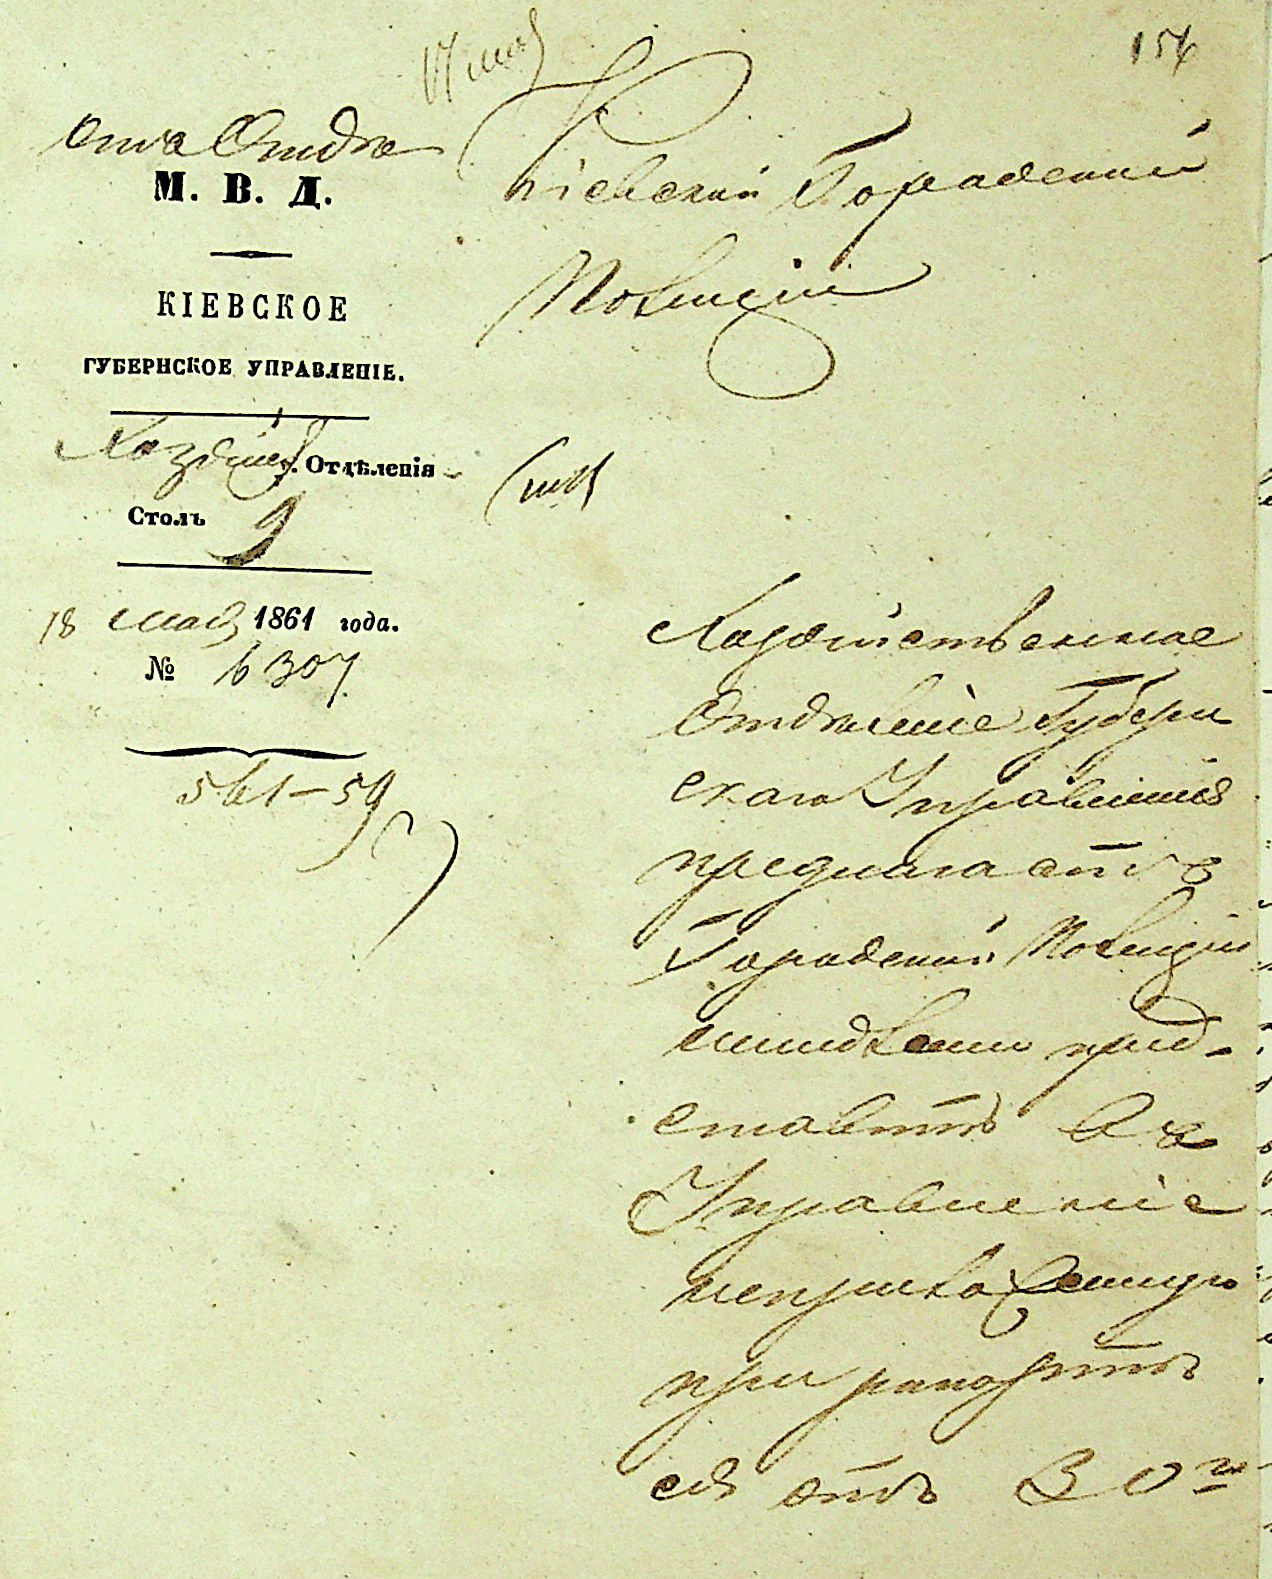 154
17 мая
М. В. Д.
КІЕВСКОЕ
ГУБЕРНСКОЕ УПРАВЛЕНІЕ.
Хозяйс. Отдѣленія
Столъ 9
18 мая 1861 года.
№ 6307
561–59
Кіевской Городской
Полиціи
Хозяйственное
Отдѣленіе Губерн
скаго Управленія
предлагаетъ
Городской Полиціи
пред-
ставить въ
Управленіе
при рапортѣ
отъ 30го